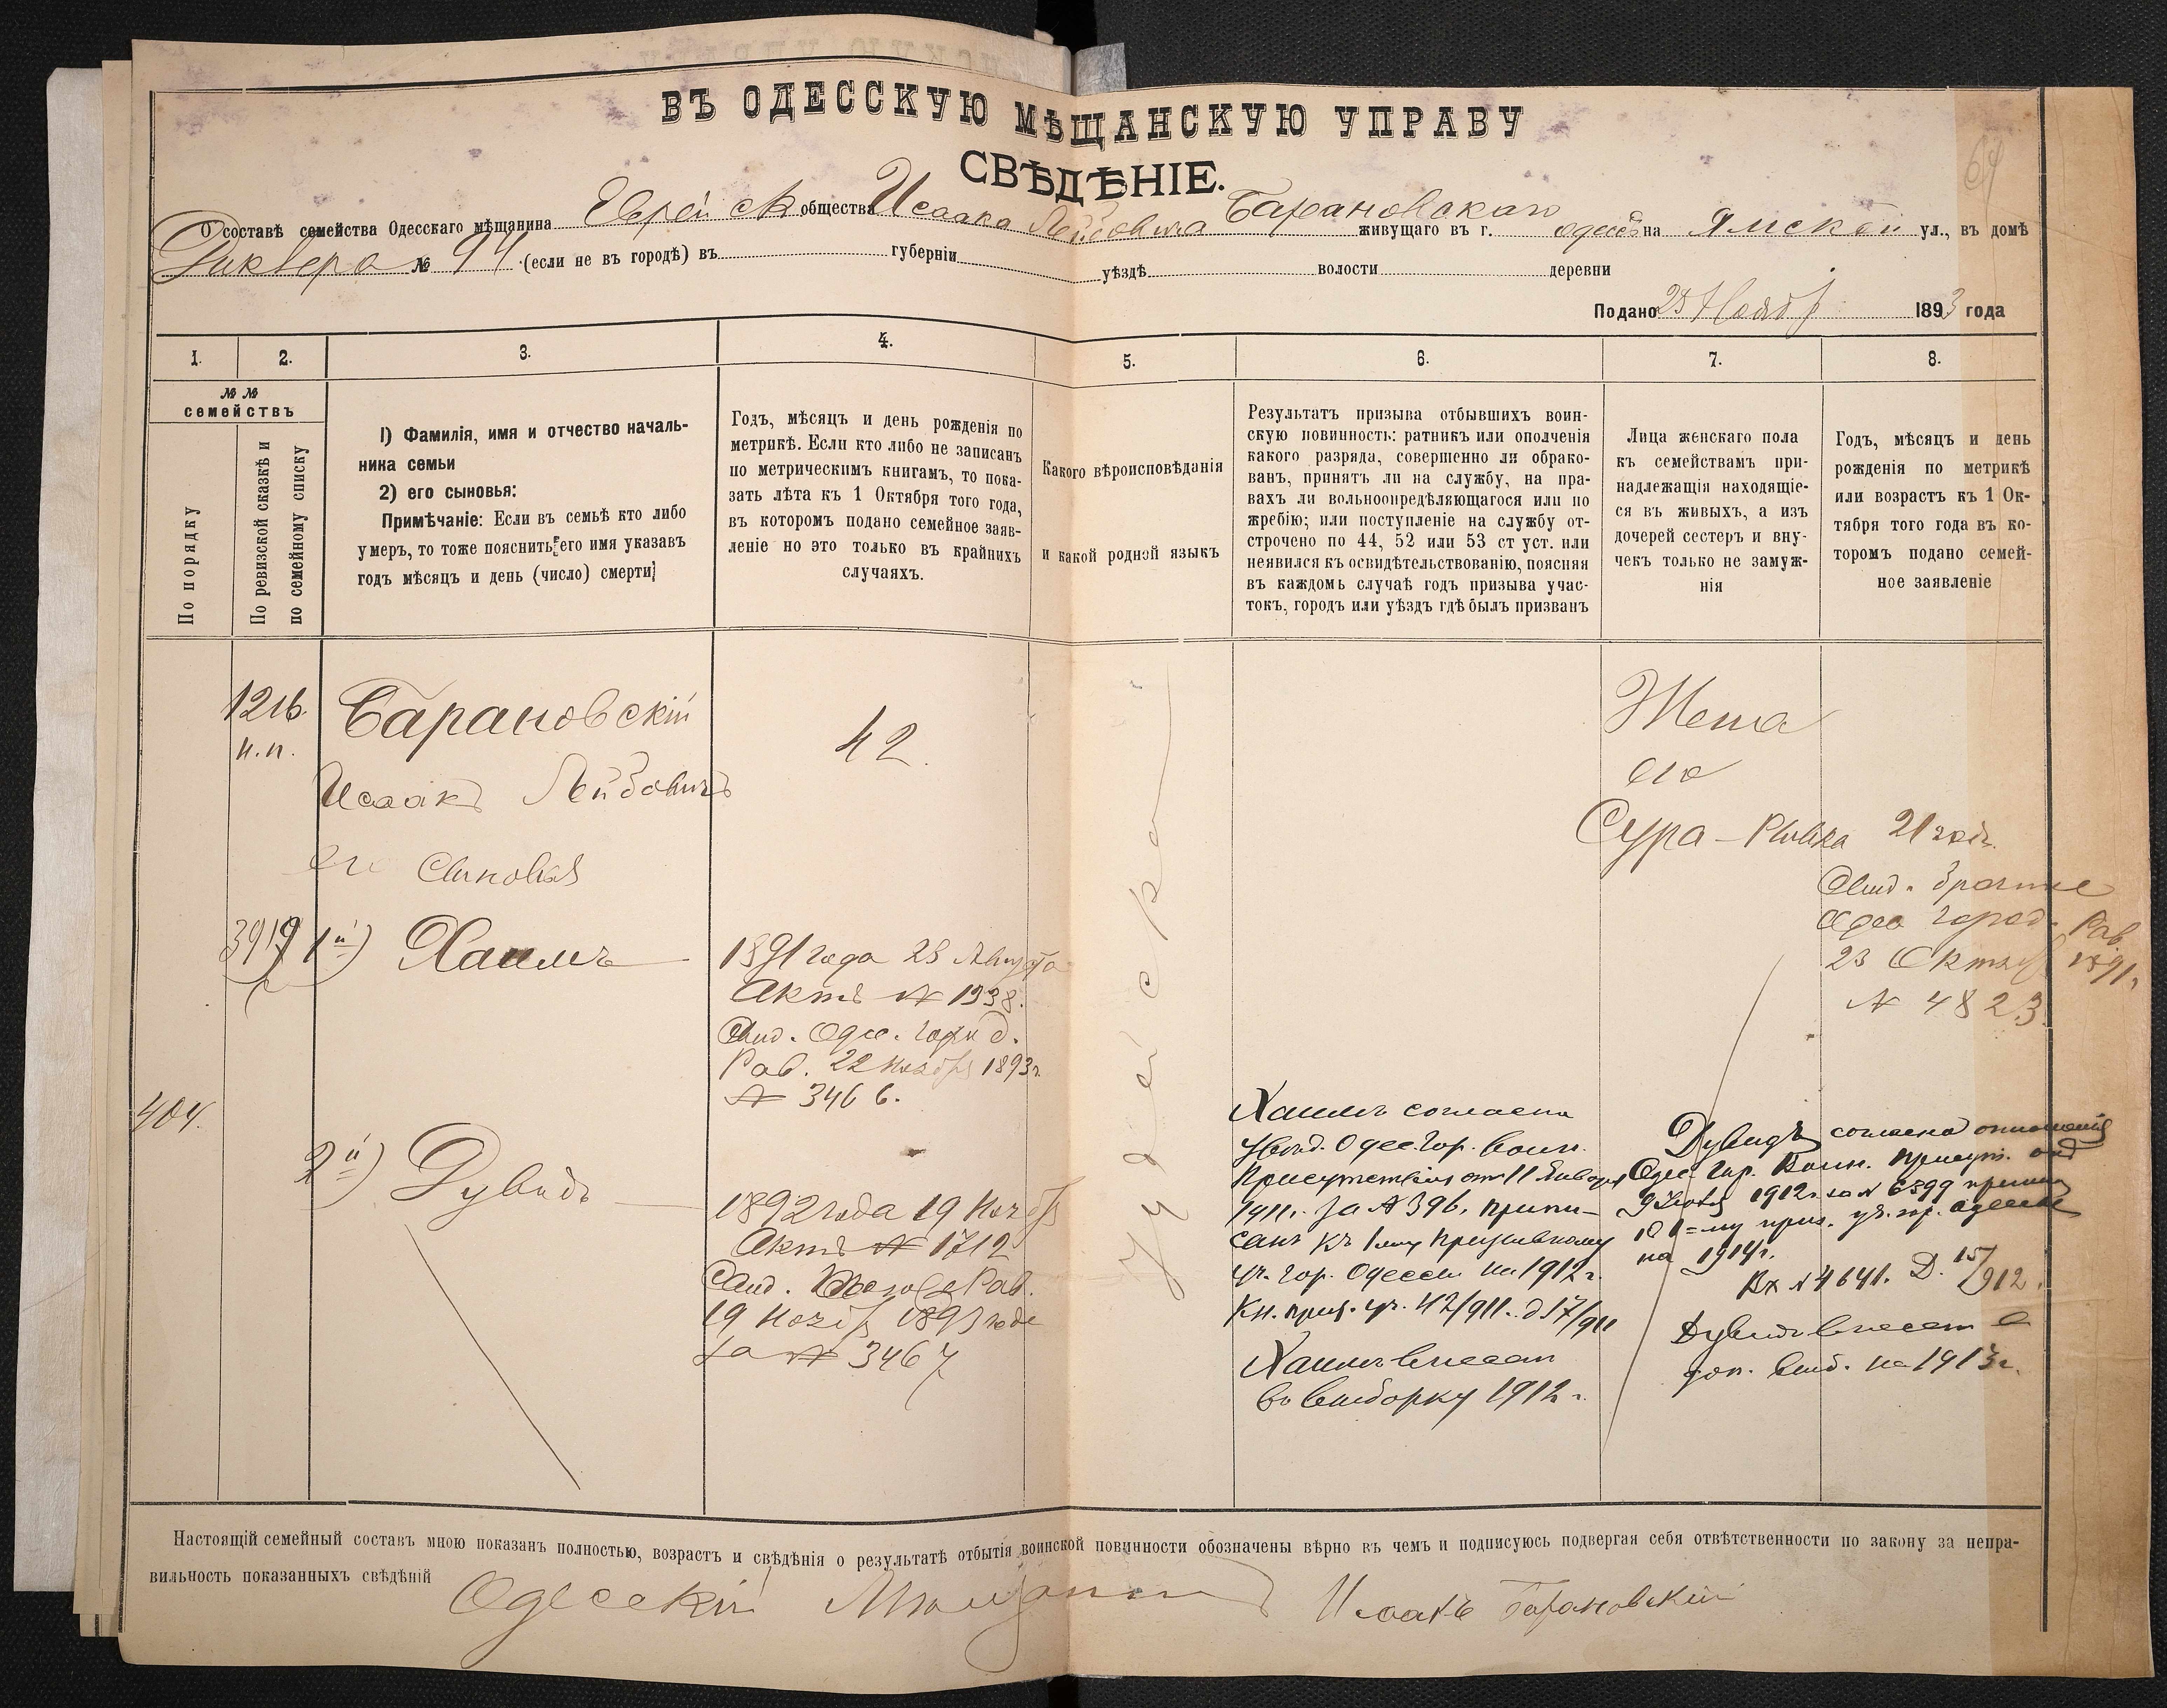 ВЪ ОДЕССКУЮ МѢЩАНСКУЮ УПРАВУ
СВѢДѢНІЕ.
О составѣ семейства Одесскаго мѣщанина Еврейск общества Исаака Лейбовича Барановскаго живущаго въ г. Одессѣ на Ямской ул., въ домѣ
№ 94 (если не въ городѣ) въ губерніи уѣздѣ волости деревни
Подано 25 Ноябр 1893 года
1. 2. 3. 4. 5. 6. 7. 8.
№ №
семействъ
По порядку
По ревизской сказкѣ и
по семейному списку
1) Фамилія, имя и отчество началь-
ника семьи
2) его сыновья:
Примѣчаніе: Если въ семьѣ кто либо
умеръ, то тоже пояснить его имя указавъ
годъ мѣсяцъ и день (число) смерти
Годъ, мѣсяцъ и день рожденія по
метрикѣ. Если кто либо не записанъ
по метрическимъ книгамъ, то пока-
зать лѣта къ 1 Октября того года,
въ которомъ подано семейное заяв-
леніе но это только въ крайнихъ
случаяхъ.
Какого вѣроисповѣданія
и какой родной языкъ
Результатъ призыва отбывшихъ воин-
скую повинность: ратникъ или ополченія
какого разряда, совершенно ли обрако-
ванъ, принятъ ли на службу, на пра-
вахъ ли вольноопредѣляющагося или по
жребію; или поступленіе на службу от-
строчено по 44, 52 или 53 ст уст. или
неявился къ освидѣтельствованію, поясняя
въ каждомъ случаѣ годъ призыва учас-
токъ, городъ или уѣздъ гдѣ былъ призванъ
Лица женскаго пола
къ семействамъ при-
надлежащія находящіе-
ся въ живыхъ, а изъ
дочерей сестеръ и вну-
чекъ только не замуж-
нія
Годъ, мѣсяцъ и день
рожденія по метрикѣ
или возрастъ къ 1 Ок-
тября того года въ ко-
торомъ подано семей-
ное заявленіе
1216.
н.п.
Барановскій
Исаакъ Лейбовичъ
его Сыновья
42
3919 1й) Хаимъ
1891 года 23 Августа
Актъ № 1938.
Свид. Одес. Город.
Рав. 22 Ноябр 1893 г.
№ 3466.
404.
2й) Дувидъ
1892 года 19 Ноябр
Актъ № 1712
Свид. Рав.
19 Ноябр 1893 года
за № 3467
Іудейскаго
Хаимъ согласно
увѣд. Одес. Гор. Воин.
Присутствія отъ 11 Января
1911 г. за № 396, припи-
санъ къ 1му призывному
уч. гор. Одессы на 1912 г.
Кн. приз. уч. 42/911. д 17/911
Хаимъ внесенъ
въ выборку 1912 г.
Жена
его
Сура-Ривка 21 годъ
Свид. брачное
Одес город. Рав.
23 Октябр 1891 г.
№ 4823
Дувидъ согласно отношенія
Одес. Гор. Воин. Присут. отъ
1912 г. за № 6399 припис
къ 1=му приз. уч. гор. Одессы
на 1914 г.
Вх № 4641. Д. 15/912.
Дувидъ внесенъ в
доп. выб. на 1913 г.
Настоящій семейный составъ мною показанъ полностью, возрастъ и свѣдѣнія о результатѣ отбытія воинской повинности обозначены вѣрно въ чемъ и подписуюсь подвергая себя отвѣтственности по закону за непра-
вильность показанныхъ свѣдѣній Одесскій Мѣщанинъ Исаакъ Барановскій